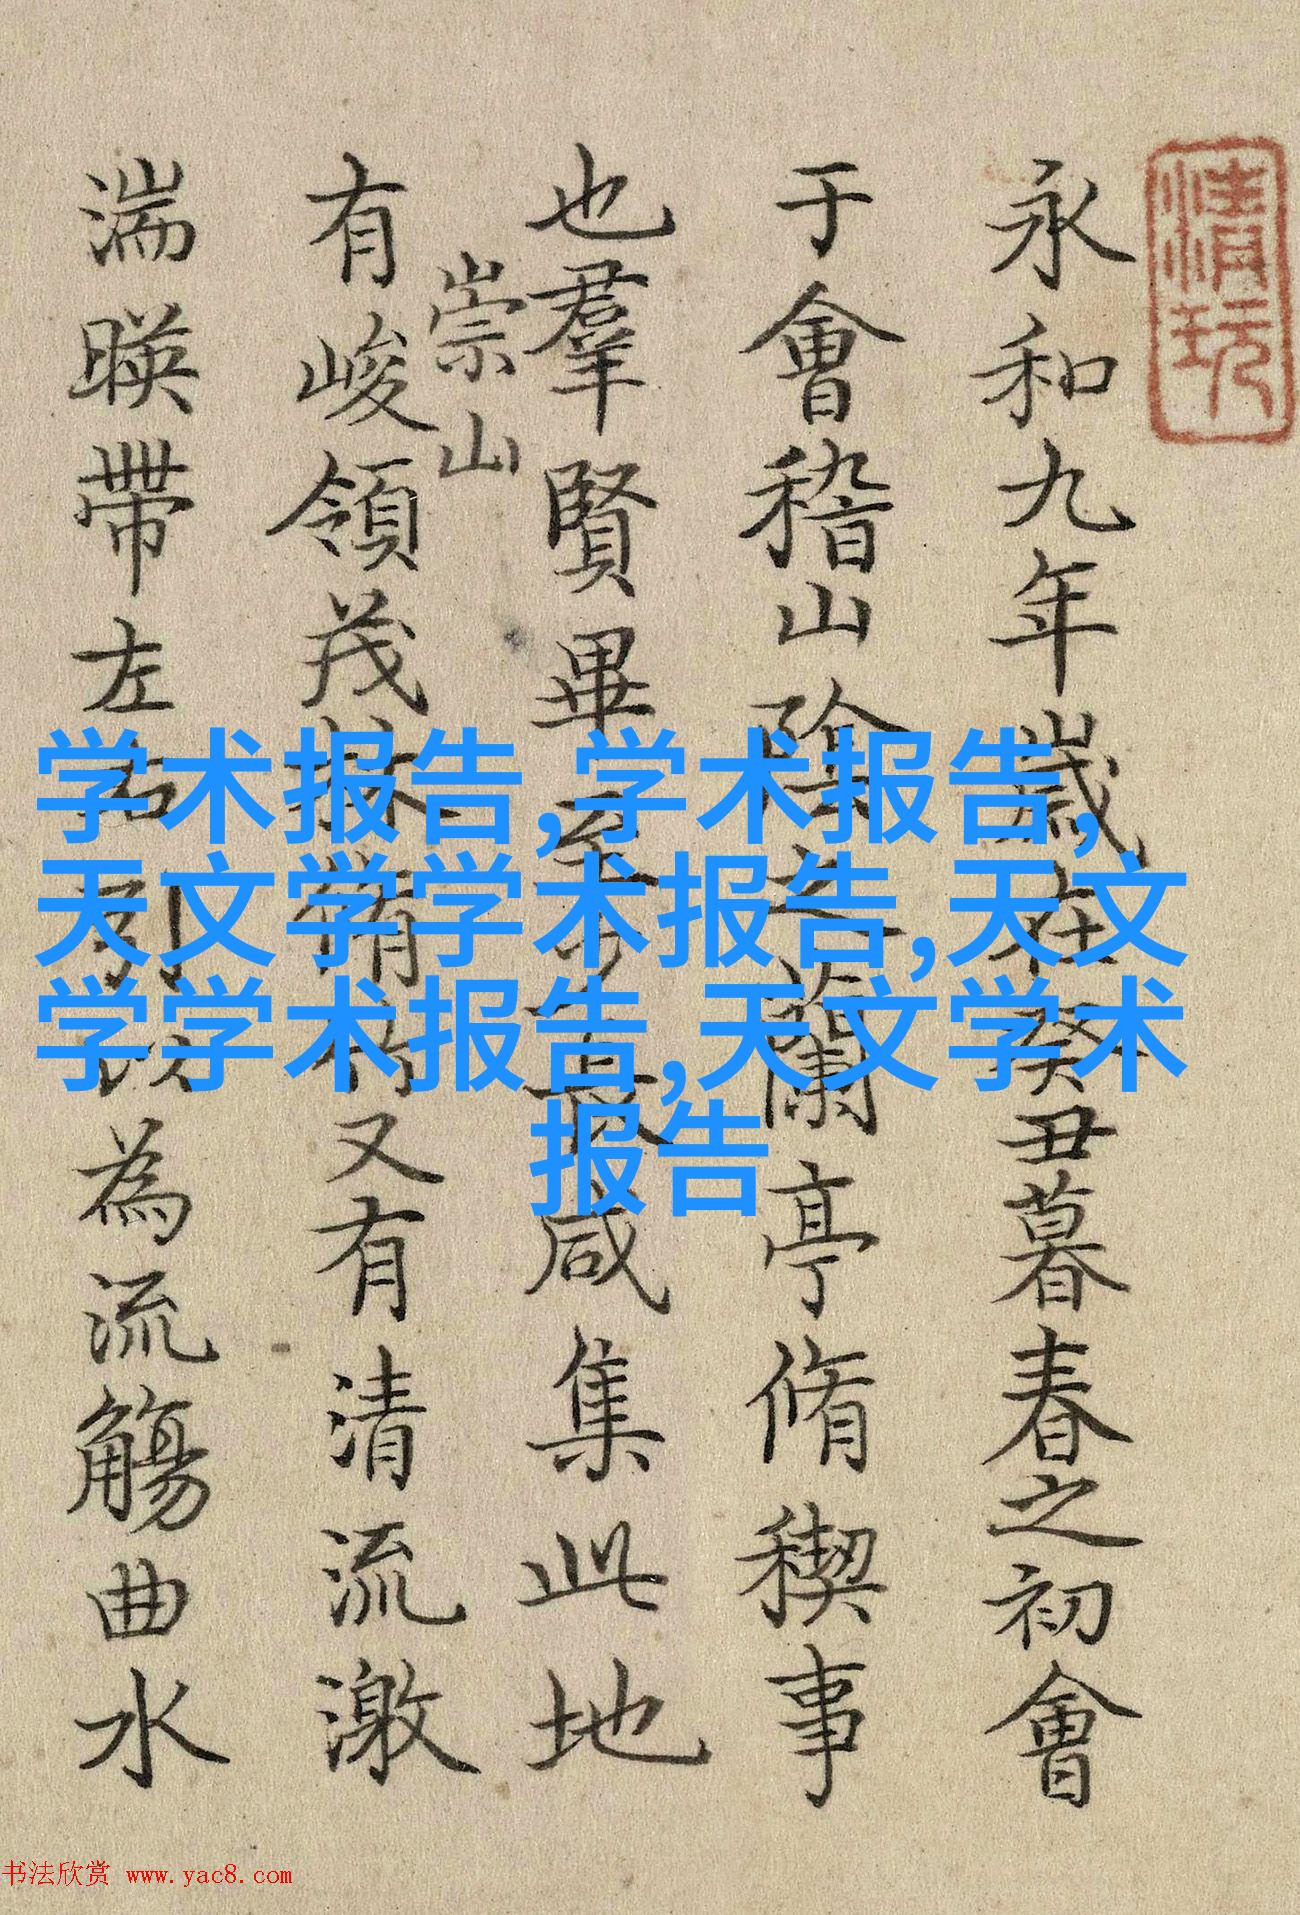 清玩
永和九年歲在癸丑暮春之初會
于會稽山陰之蘭亭脩稧事
也羣賢畢至少長咸集此地
崇山
有峻領茂林脩竹又有清流激
湍暎帶左右引以為流觴曲水
学术报告,学术报告,
天文学学术报告,天文
学学术报告,天文学术
报告
书法欣赏 www.yac8.com